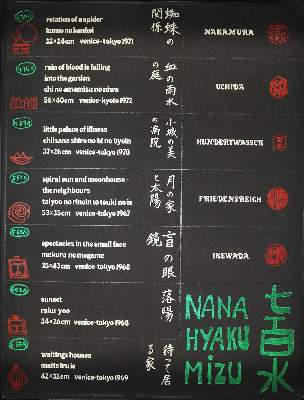 relation of a spider
kumo no kankei
32×24cm venice-tokyo 1971
蜘蛛の
関係
NAKAMURA
rain of blood is falling
into the garden
chi no amamitsu no niwa
56×40cm venice-kyoto 1972
血の雨水
の庭
UCHIDA
little palace of illness
chiisana shiro no bi no byoin
37×26cm venice-tokyo 1970
小城の美
の病院
HUNDERTWASSER
spiral sun and moonhouse-
the neighbours
taiyo no rinoin to tsuki no ie
53×35cm venice-tokyo 1967
月の家
と太陽
FRIEDENSREICH
spectacles in the small face
makura no megame
35×43cm venice-tokyo 1968
盲の眼
鏡
IKEWADA
sunset
raku yoo
34×26cm venice-tokyo 1968
落陽
waitings houses
matte iru ie
42×32cm venice-tokyo 1969
待って居
る家
NANA
HYAKU
MIZU
七百水